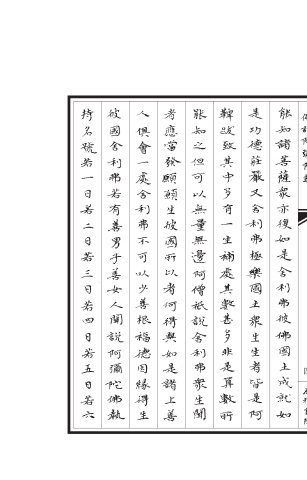 能知諸菩薩眾亦復如是舍利弗彼佛國土成就如
是功德莊嚴又舍利弗極樂國土眾生生者皆是阿
鞞跋致其中多有一生補處其數甚多非是算數所
能知之但可以無量無邊阿僧祇說舍利弗眾生聞
者應當發願願生彼國所以者何得與如是諸上善
人俱會一處舍利弗不可以少善根福德因緣得生
彼國舍利弗若有善男子善女人聞說阿彌陀佛執
持名號若一日若二日若三日若四日若五日若六